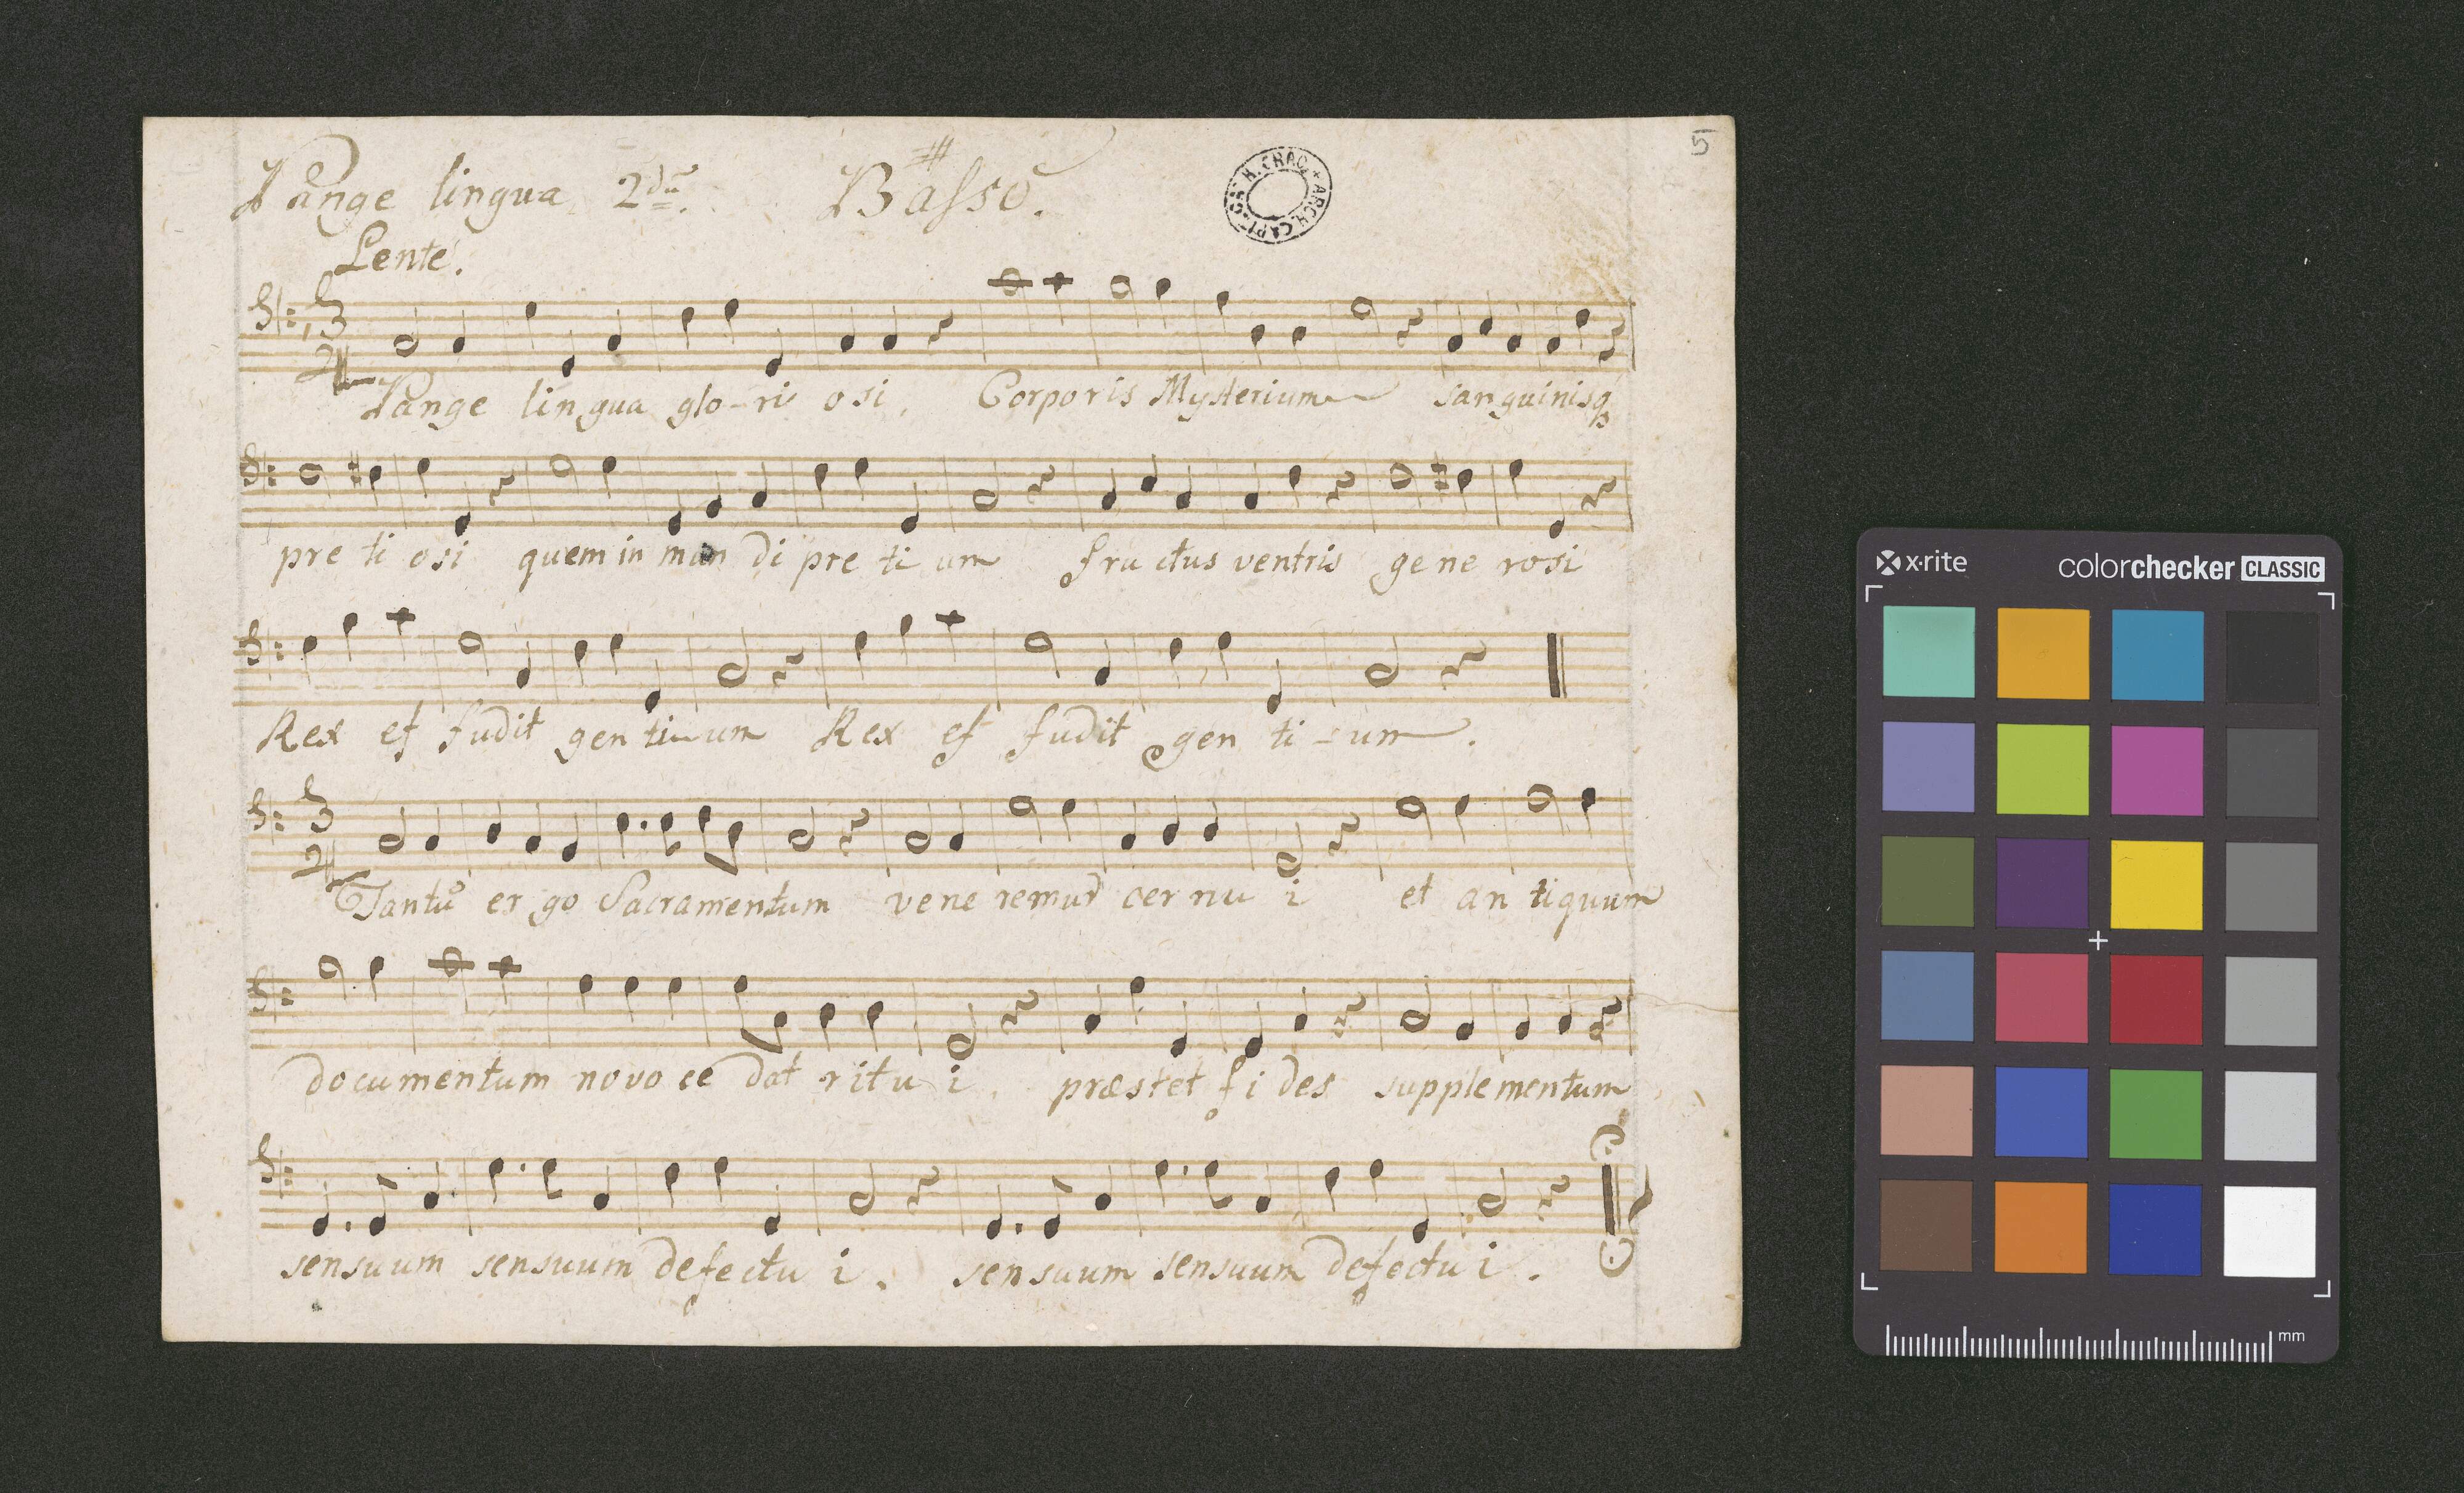 Pange lingua 2dū. Basso. 5
Lente.
Pange lingua glo-ri osi, Corporis Mysterium sanguinisq
pre ti osi quem in mun di pre ti um fructus ventris ge ne rosi
Rex ef fudit gen ti-um Rex ef fudit gen ti-um.
Tantū er go Sacramentum ve ne remur cer nu i et an tiquum
documentum novo ce dat ritu i. præstet fi des supplementum
sensuum sensuum defectu i. sensuum sensuum defectu i.
x·rite colorchecker CLASSIC
mm